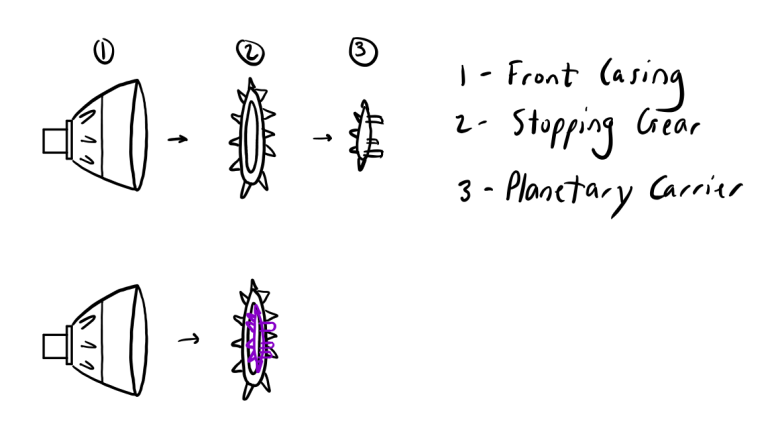 ① ② ③
1 - Front Casing
2 - Stopping Gear
3 - Planetary Carrier